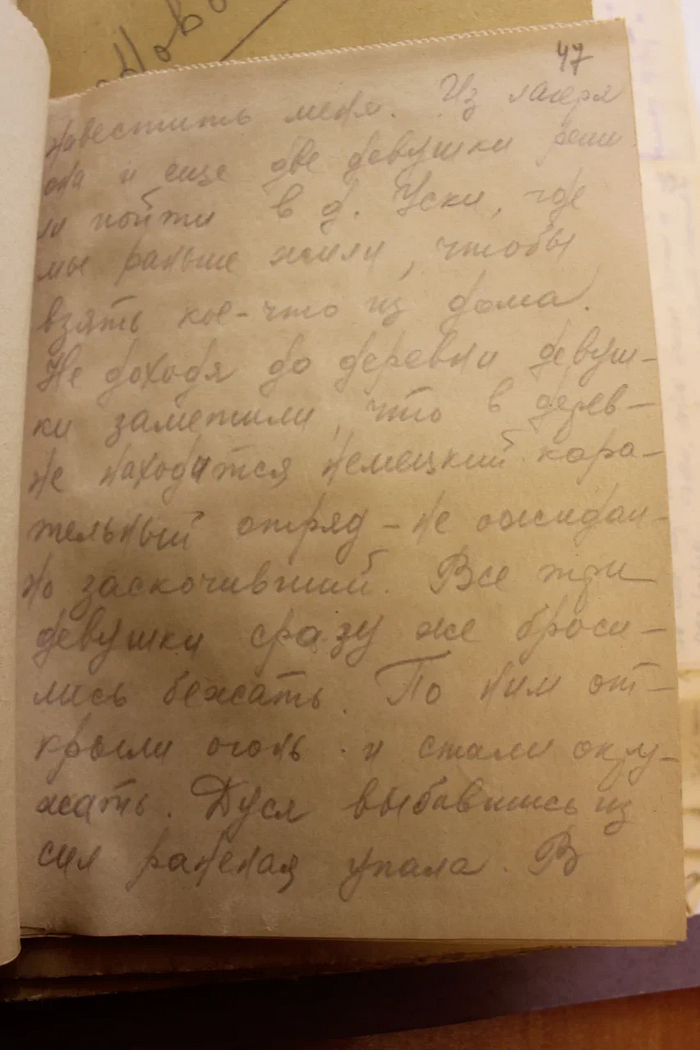 47
навестить меня. Из лагеря
она и еще две девушки реши-
ли пойти в д. Уски, где
мы раньше жили, чтобы
взять кое-что из дома.
Не доходя до деревни девуш-
ки заметили, что в дерев-
не находится немецкий кара-
тельный отряд - не ожидан-
но заскочивший. Все три
девушки сразу же броси-
лись бежать. По ним от-
крыли огонь и стали окру-
жать. Дуся выбившись из
сил раненая упала. В